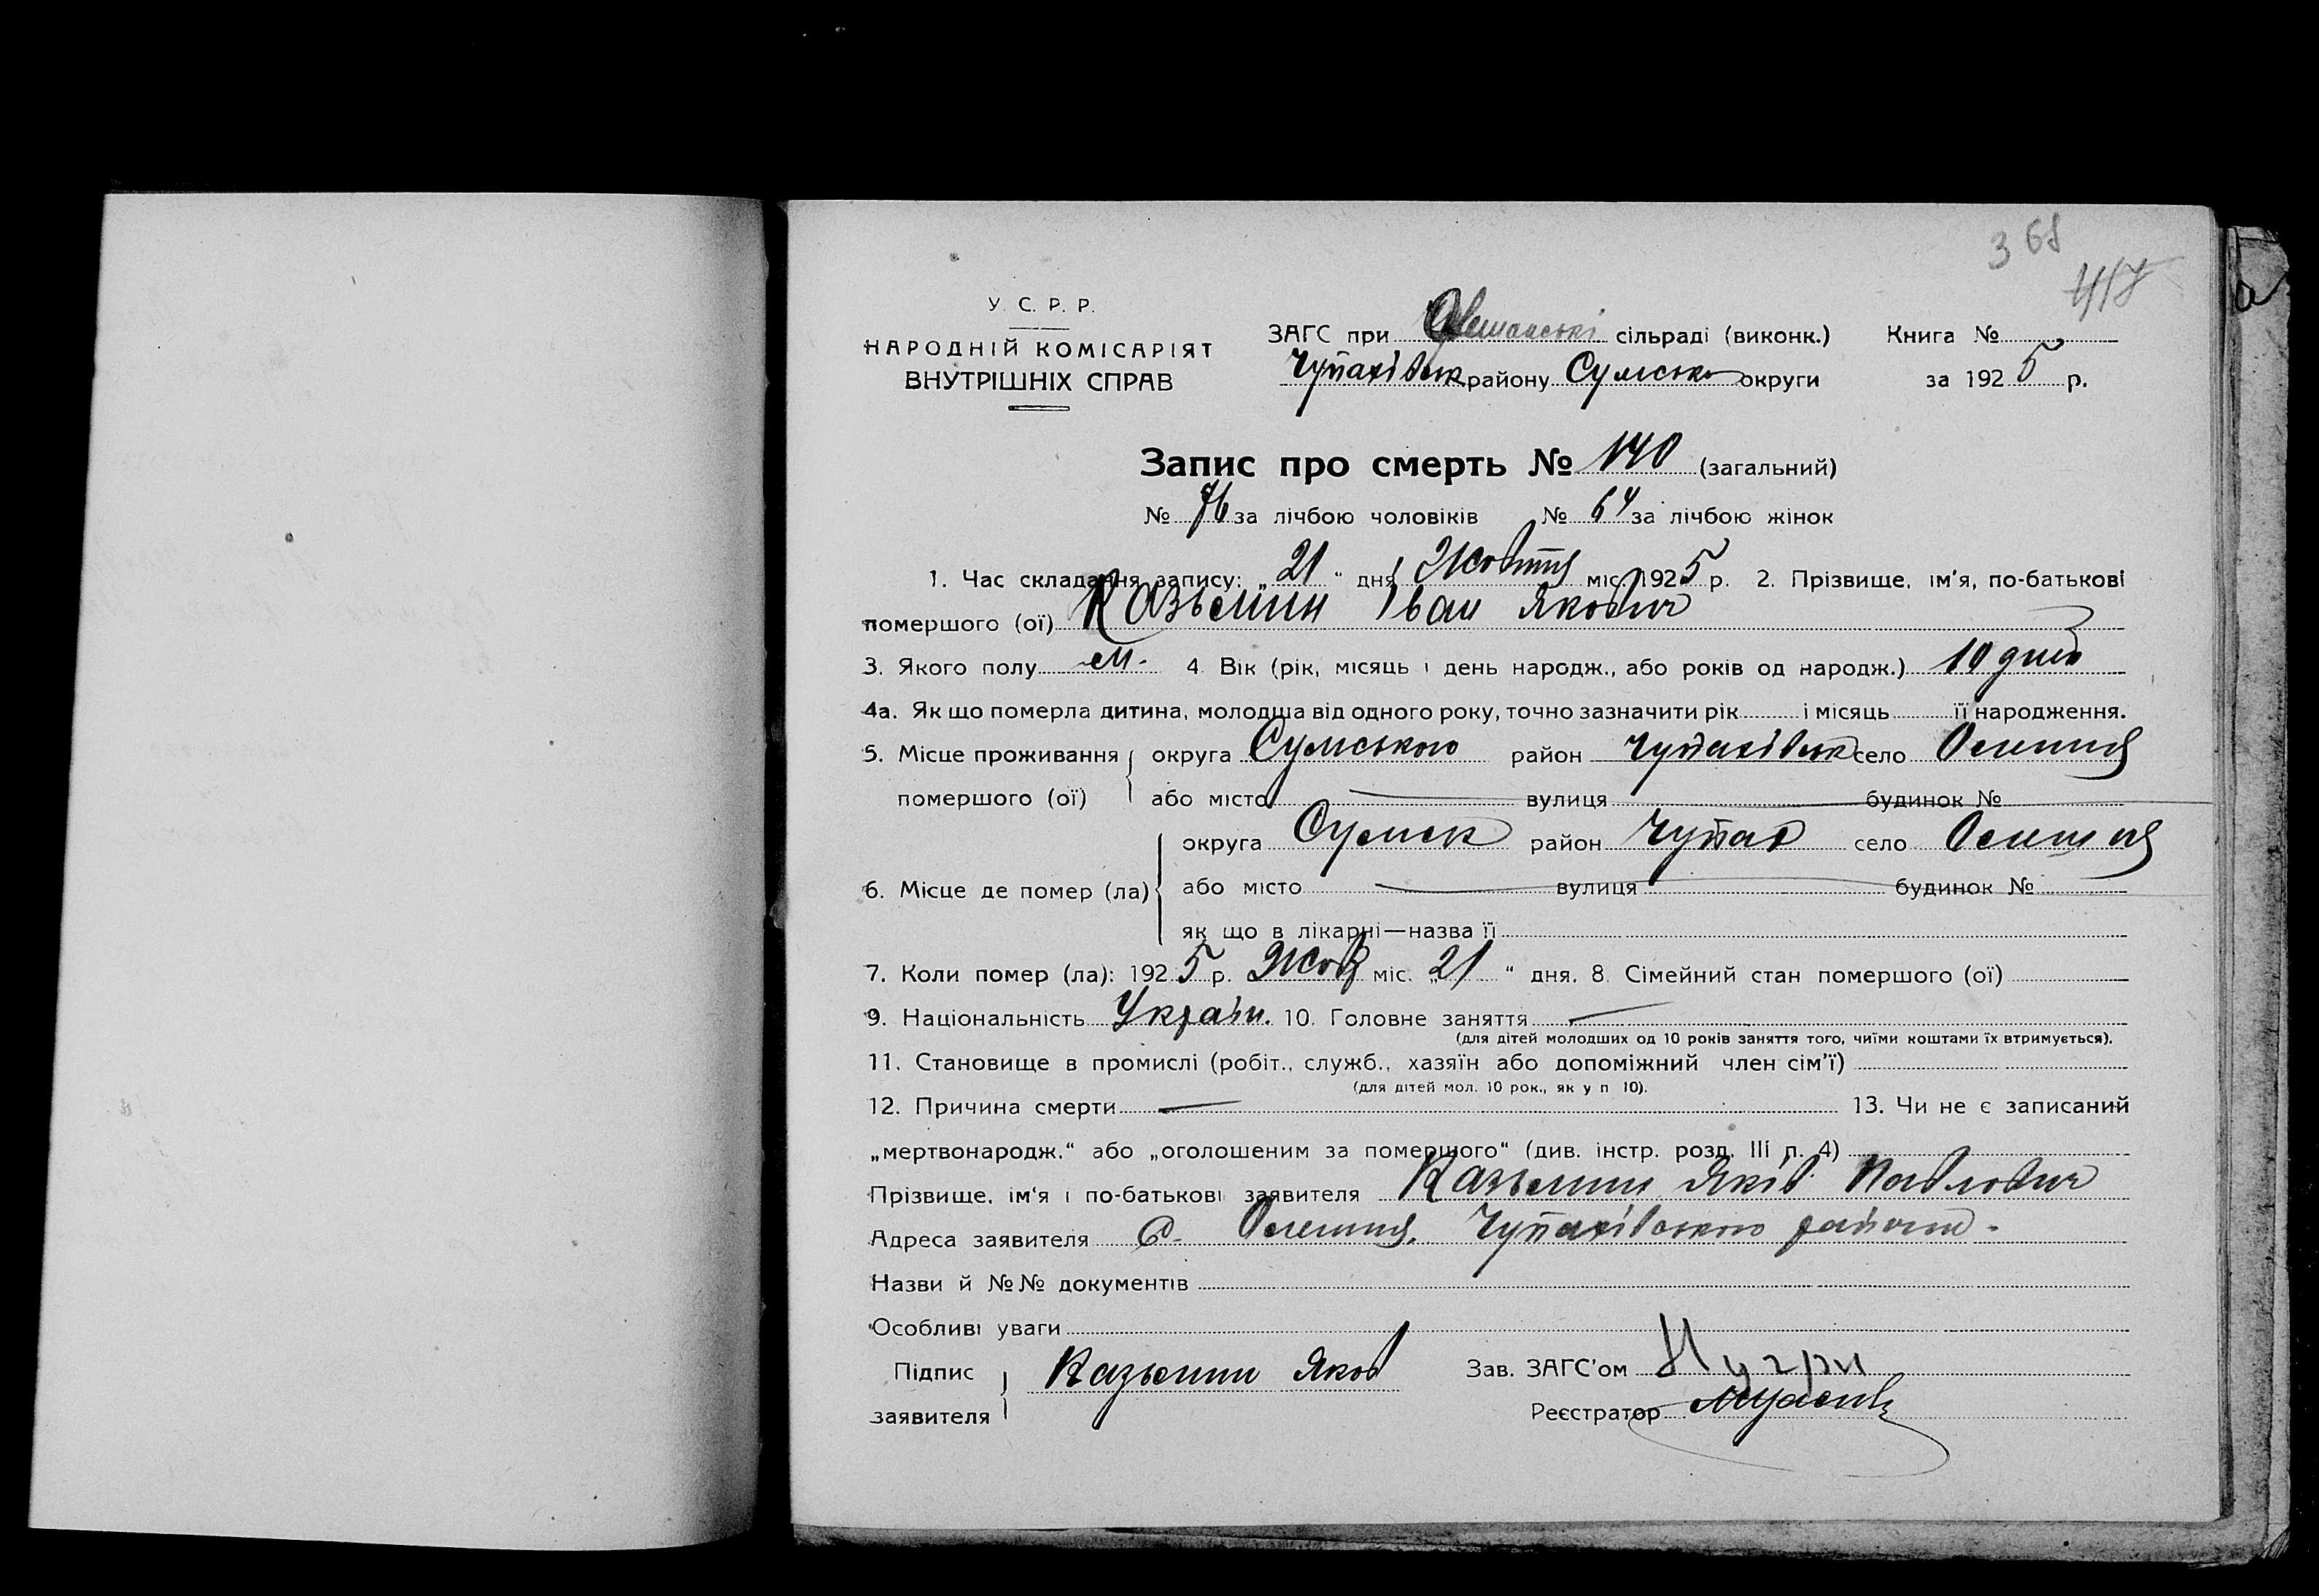 368
417
У. С. Р. Р.
НАРОДНІЙ КОМІСАРІЯТ
ВНУТРІШНІХ СПРАВ
ЗАГС при сільраді (виконк.) Книга №
Чупахівськ району Сумсько округи за 1925 р.
Запис про смерть № 140 (загальний)
№ 76 за лічбою чоловіків № 64 за лічбою жінок
1. Час складання запису: „21“ дня Жовтня міс. 1925 р. 2. Прізвище, ім'я, по-батькові
помершого (ої) Казьмин Іван Якович
3. Якого полу м. 4. Вік (рік, місяць і день народж., або років од народж.) 10 днів
4а. Як що померла дитина, молодша від одного року, точно зазначити рік і місяць її народження.
5. Місце проживання округа Сумського район Чупахівськ село Олешня
помершого (ої) або місто вулиця будинок №
округа Сумск район Чупах село Олешня
6. Місце де помер (ла) або місто вулиця будинок №
як що в лікарні—назва її
7. Коли помер (ла): 1925 р. Жовт міс. „21“ дня. 8. Сімейний стан помершого (ої)
9. Національність Україн. 10. Головне заняття —
(для дітей молодших од 10 років заняття того, чиїми коштами їх втримується).
11. Становище в промислі (робіт., служб., хазяїн або допоміжний член сім'ї)
(для дітей мол. 10 рок., як у п 10).
12. Причина смерти — 13. Чи не є записаний
„мертвонародж.“ або „оголошеним за помершого“ (див. інстр. розд. III п. 4)
Прізвище, ім'я і по-батькові заявителя Казьмин Яків Павлович
Адреса заявителя с. Олешня, Чупахівського району.
Назви й №№ документів
Особливі уваги
Підпис Казьмин Яков Зав. ЗАГС'ом
заявителя Реєстратор